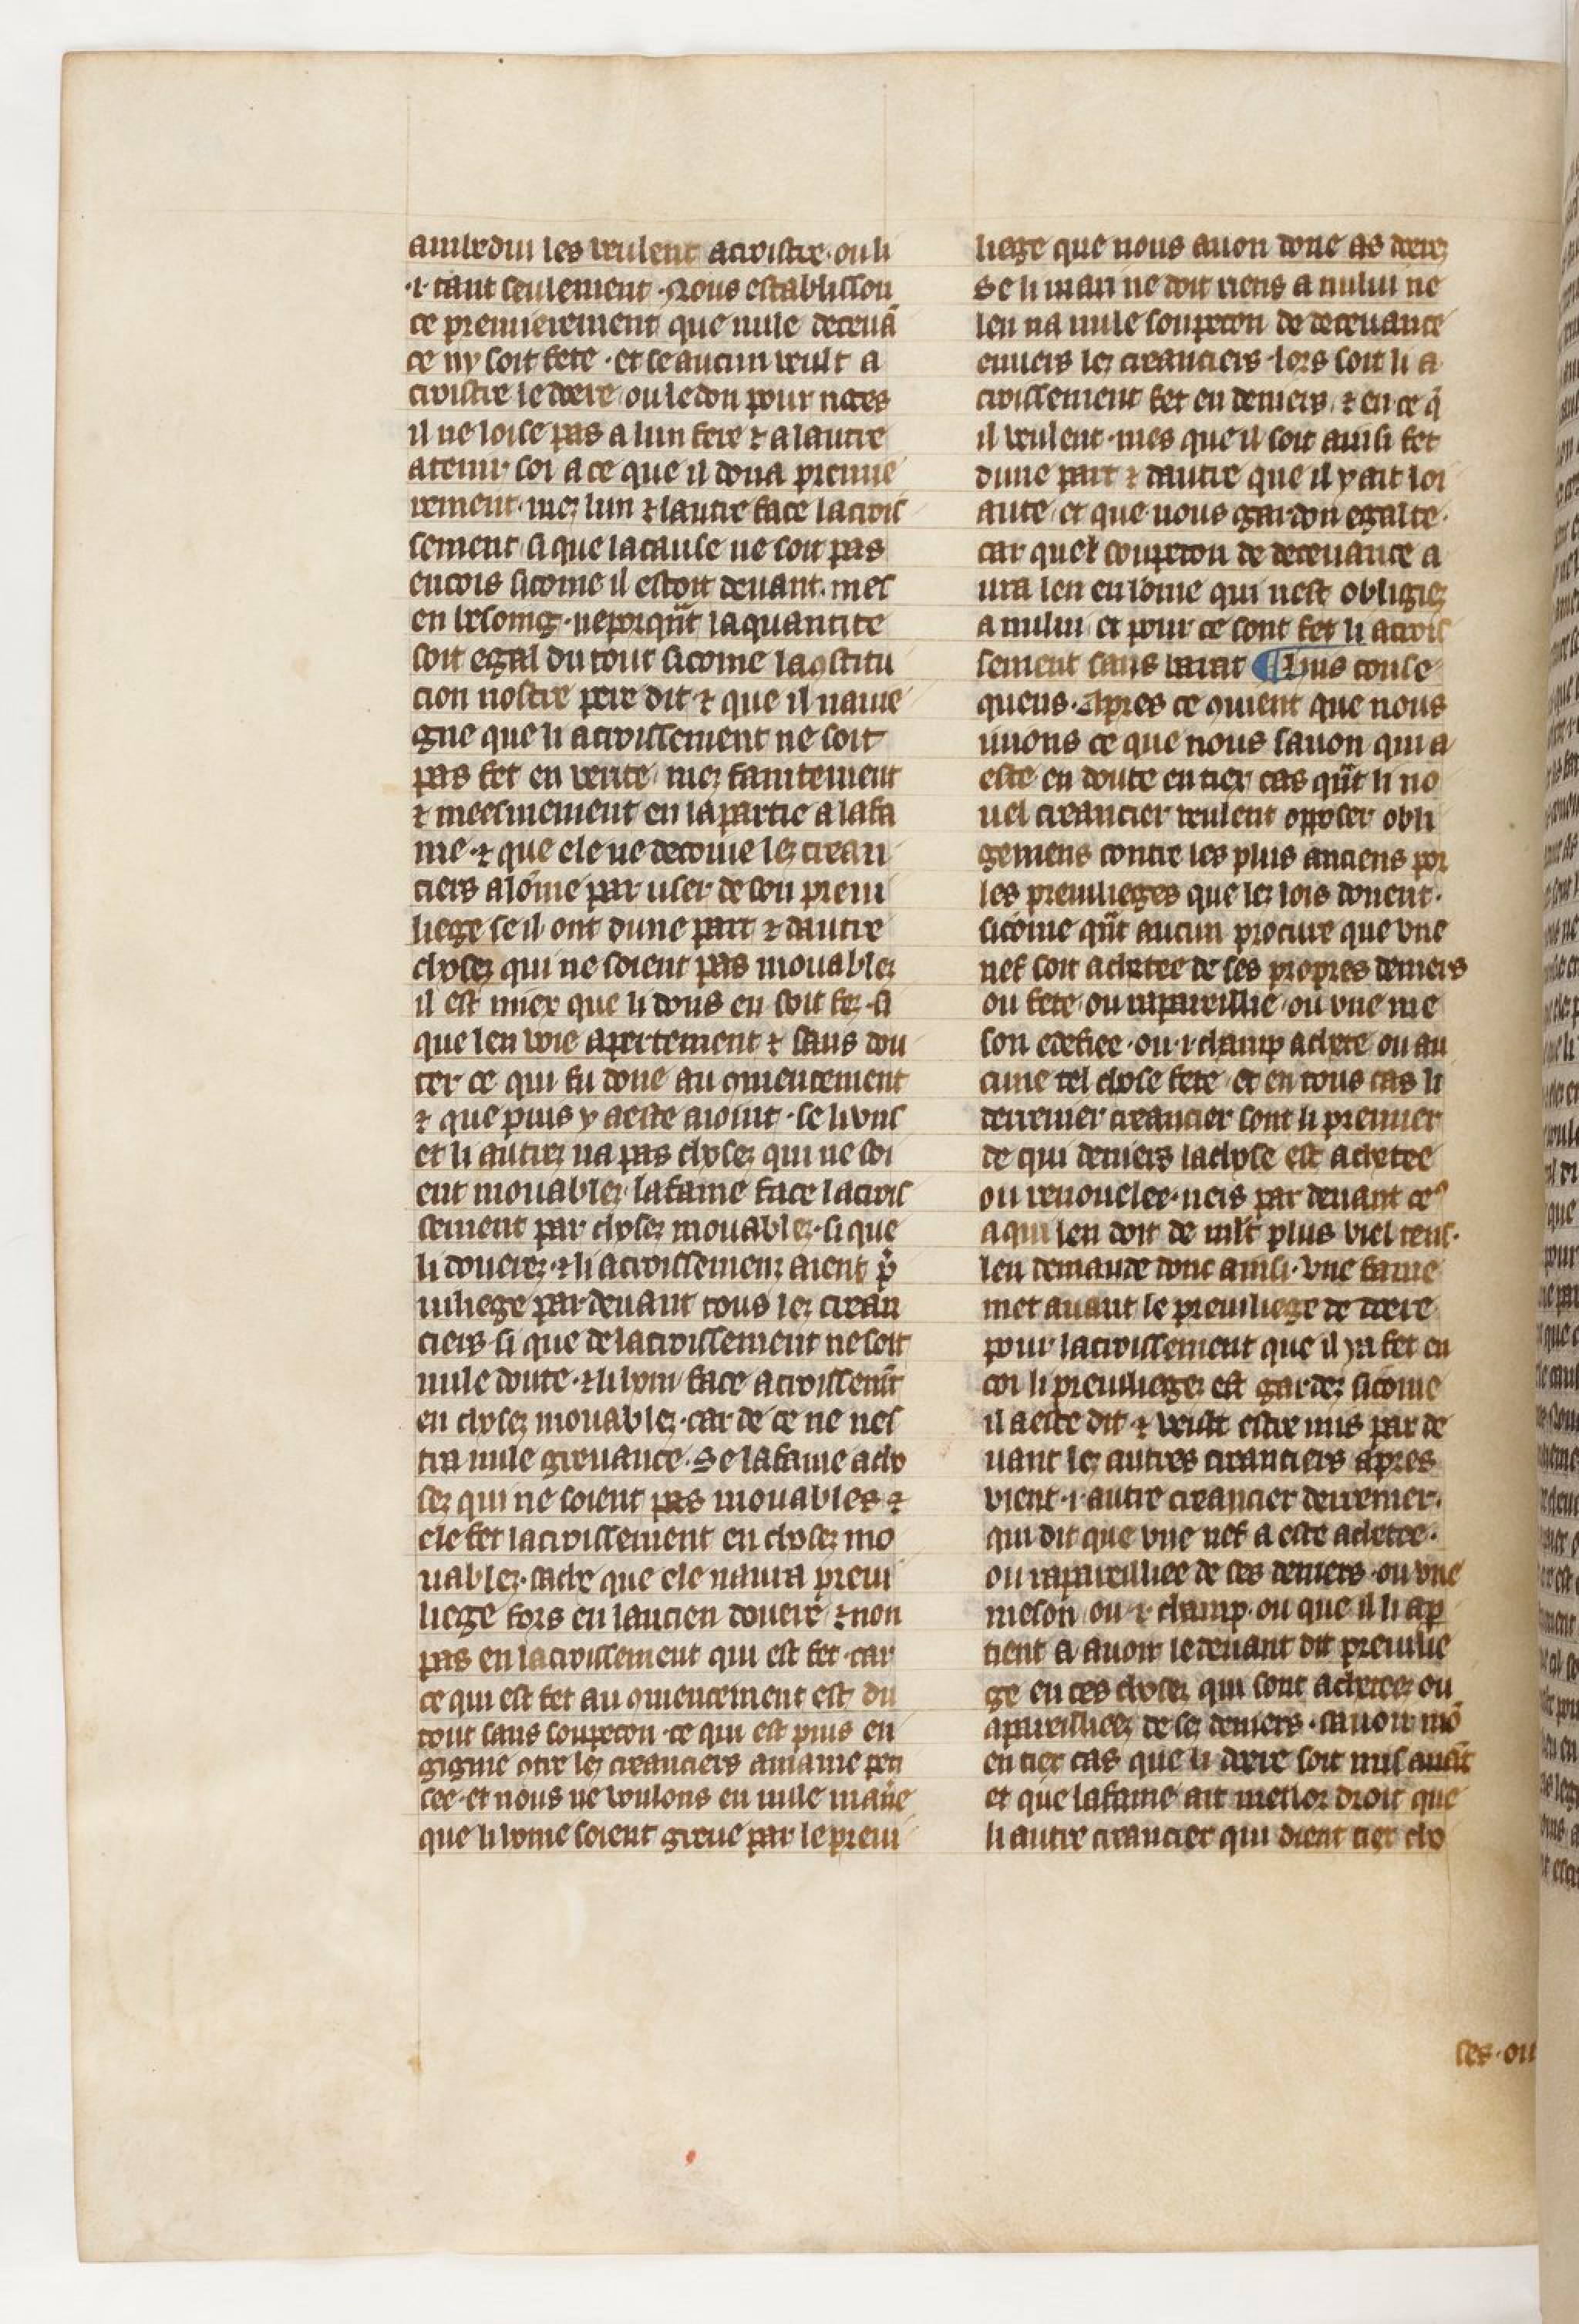 amredui les veulent acroistre. ou li
.i. tant seulement. Nous establisson
ce premierement que nule deceuā
ce ny soit fete. et se aucun veult a
croistre le doere ou le don pour noces
il ne loise pas a lun fere ⁊ a lautre
atenir soi a ce que il dona premie
rement. mez lun ⁊ lautre face lacrois
sement si que la cause ne soit pas
encois sicome il estoit deuant. mes
en besoing. neporqũt la quantite
soit egal du tout sicome laꝯstitu
cion nostre pere dit ⁊ que il nauie
gne que li acroissement ne soit
pas fet en verite. mez faintement
⁊ meesmement en la partie a la fa
me. ⁊ que ele ne decoiue lez crean
ciers a lōme par user de son preui
liege se il ont dune part ⁊ dautre
chosez qui ne soient pas mouablez
il est miex que li dons en soit fez. si
que len voie apertement ⁊ sans dou
ter ce qui fu done au ꝯmencement
⁊ que puis y a este aioint. se li vns
et li autrez na pas chosez qui ne soi
ent mouablez. la fame face lacrois
sement par chosez mouablez. si que
li douerez. ⁊ li acroissemenz aient p̄
uiliege par deuant tous lez crean
ciers. si que de lacroissement ne soit
nule doute. ⁊ li hom face acroissemt̄
en chosez mouablez. car de ce ne nes
tra nule greuance. Se la fame a cho
sez qui ne soient pas mouables ⁊
ele fet lacroissement en chosez mo
uablez. sache que ele naura preui
liege fors en lancien douere ⁊ non
pas en lacroissement qui est fet. car
ce qui est fet au ꝯmencement est du
tout sans soupecon. ce qui est puis en
gignie ꝯtre lez creanciers amaine pen
see. et nous ne voulons en nule maīe
que li home soient greue par le preui
liege que nous auon done as doerez
Se li mari ne doit riens a nului ne
len na nule soupecon de deceuance
enuers lez creanciers. lors soit li a
croissement fet en deniers. ⁊ en ce q̄
il veulent. mes que il soit ainsi fet
dune part ⁊ dautre que il y ait loi
aute. et que nous gardon egalte.
car quel soupecon de deceuance a
ura len en lome qui nest obligiez
a nului. et pour ce sont fet li acrois
sement sans barat ¶ Hiis conse
quens. Apres ce ꝯuient que nous
uuons ce que nous sauon qui a
este en doute en tiex cas qũt li no
uel creancier veulent opposer obli
gemens contre les plus anciens por
les preuilieges que lez lois donent.
sicome qũt aucun procure que vne
nef soit achetee de ses propres deniers
ou fete. ou rapareillie. ou vne me
son edefiee. ou .i. champ achete ou au
cune tel chose fete. et en tous cas li
derrenier creancier sont li premier
de qui deniers la chose est achetee
ou renouelee. neis par deuant ceꝰ
a qui len doit de ml̄t plus viel tens.
len demande donc ainsi. vne fame
met auant le preuiliege de doere
pour lacroissement que il y a fet en
coi li preuiliegez est gardez sicome
il a este dit. ⁊ veult estre mis par de
uant lez autres creanciers apres
vient .i. autre creancier derrenier.
qui dit que vne nef a este achetee.
ou rapareilliee de ses deniers. ou vne
meson. ou .i. champ. ou que il li ap
tient a auoir le deuant dit preuilie
ge en ces chosez qui sont achetees ou
apareilliees de sez deniers. sauoir mō
en tiex cas que li doere soit mis auāt
et que la fame ait mellor droit que
li autre creancier qui dient tiex cho
ses. ou